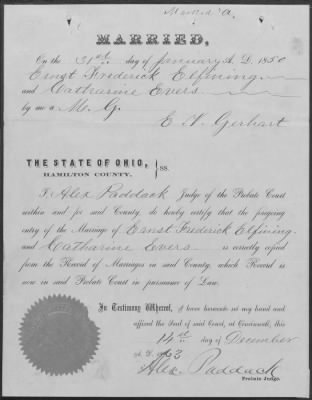 MARRIED,
On the 31st day of January A. D. 1850
Ernst Frederick Elfining
and Catharine Evers
by me a M. G.
E. V. Gerhart
THE STATE OF OHIO,
HAMILTON COUNTY. } SS.
I, Alex Paddack Judge of the Probate Court
within and for said County, do hereby certify that the foregoing
entry of the Marriage of Ernst Frederick Elfining
and Catharine Evers is correctly copied
from the Record of Marriages in said County, which Record is
now in said Probate Court in pursuance of Law.
In Testimony Whereof, I have hereunto set my hand and
affixed the Seal of said Court, at Cincinnati, this
14th day of December
A. D. 1863
Alex Paddack
Probate Judge.